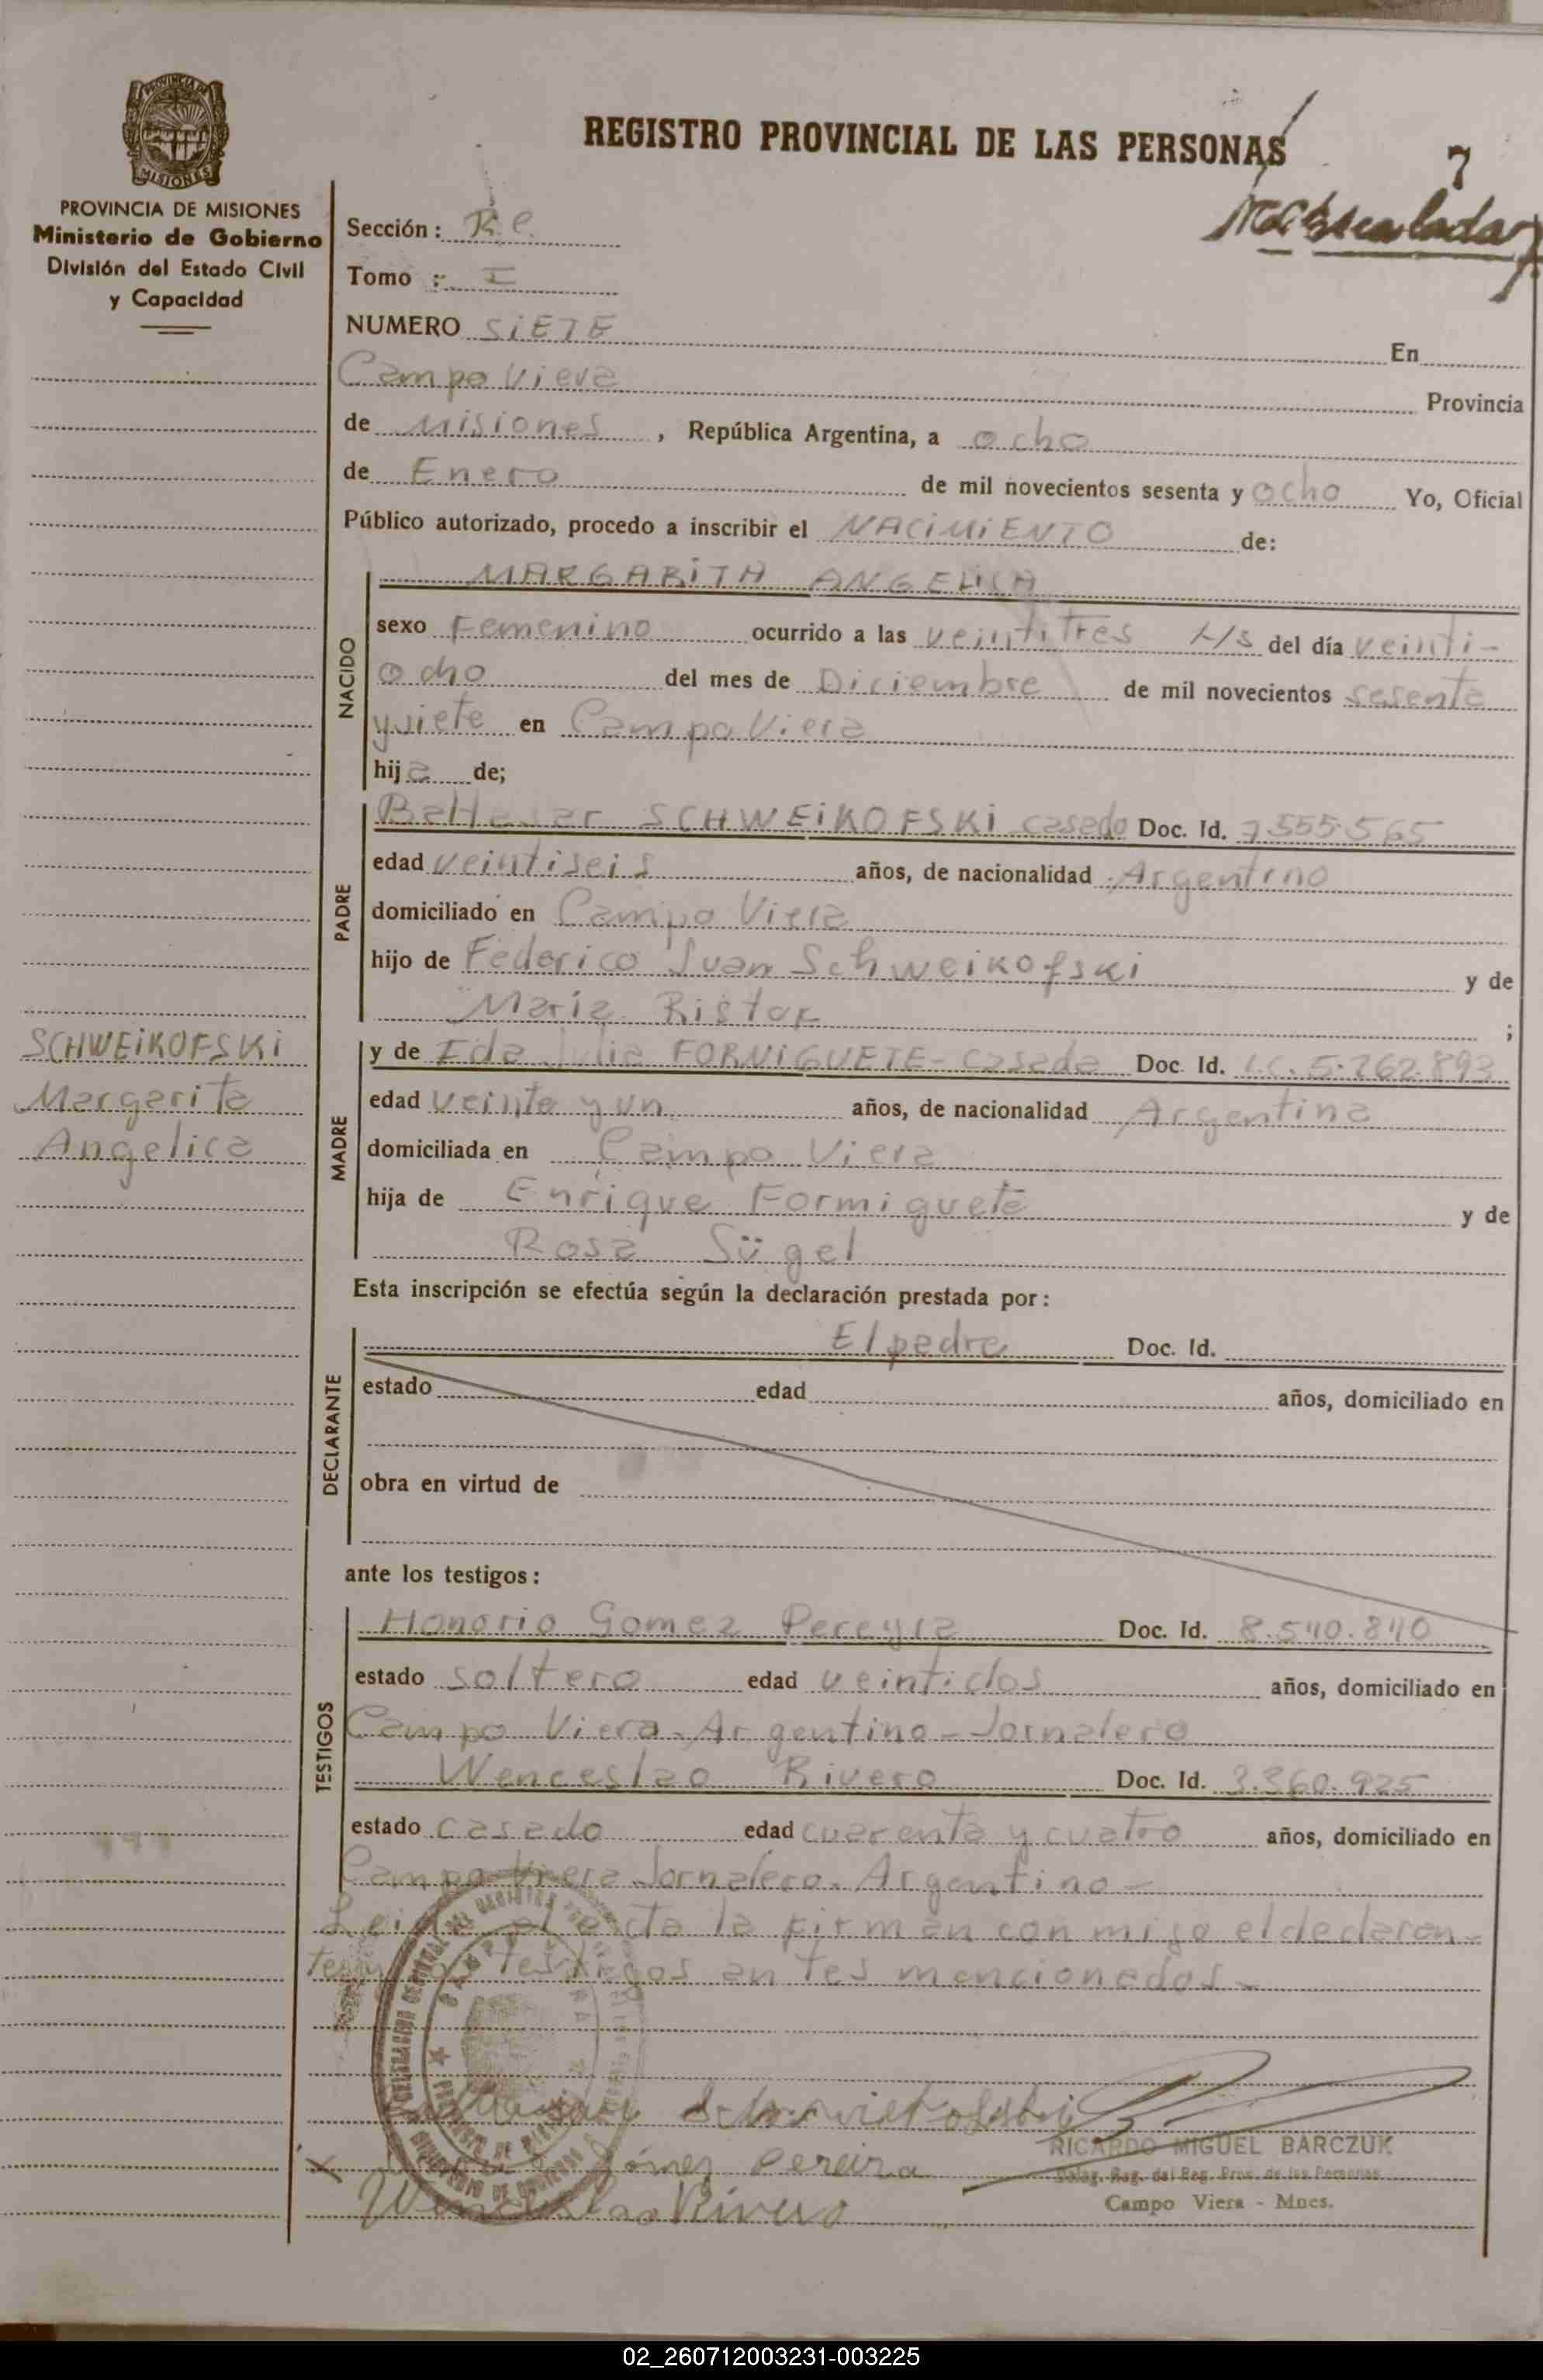 REGISTRO PROVINCIAL DE LAS PERSONAS
7
Matriculada
PROVINCIA DE MISIONES
Ministerio de Gobierno
División del Estado Civil
y Capacidad
Sección:
Tomo : I
NUMERO SiETE En
Campo Viera Provincia
de Misiones, República Argentina, a ocho
de Enero de mil novecientos sesenta y ocho Yo, Oficial
Público autorizado, procedo a inscribir el NACiMiENTO de:
NACIDO
MARGARiTA ANGELICA
sexo Femenino ocurrido a las veintitres H/s del día veinti-
ocho del mes de Diciembre de mil novecientos sesenta
y siete en Campo Viera
hija de;
PADRE
Baltasar SCHWEiKOFSKi casado Doc. Id. 7.555.565
edad veintiseis años, de nacionalidad Argentino
domiciliado en Campo Viera
hijo de Federico Juan Schweikofski y de
María ;
SCHWEiKOFSKi
Margarita
Angelica
MADRE
y de Ida Julia FORMiGUETE - casada Doc. Id. L.C. 5.262.893
edad veinte y un años, de nacionalidad Argentina
domiciliada en Campo Viera
hija de Enrique Formiguete y de
Rosa Sügel
Esta inscripción se efectúa según la declaración prestada por:
DECLARANTE
El padre Doc. Id.
estado edad años, domiciliado en
obra en virtud de
ante los testigos:
TESTIGOS
Honorio Gomez Pereyra Doc. Id. 8.540.840
estado soltero edad veintidos años, domiciliado en
Campo Viera - Argentino - Jornalero
Wenceslao Rivero Doc. Id. 3.360.925
estado casado edad cuarenta y cuatro años, domiciliado en
Campo Viera Jornalero. Argentino -
Leida el acta la firman conmigo el declaran-
te y testigos antes mencionados -
Gómez Pereira
Wenceslao Rivero
RICARDO MIGUEL BARCZUK
Deleg. Reg. del Reg. Prov. de las Personas
Campo Viera - Mnes.
02_260712003231-003225